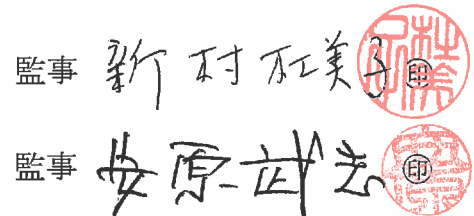 監事 新村 杜美子 ㊞
監事 安原 武志 ㊞